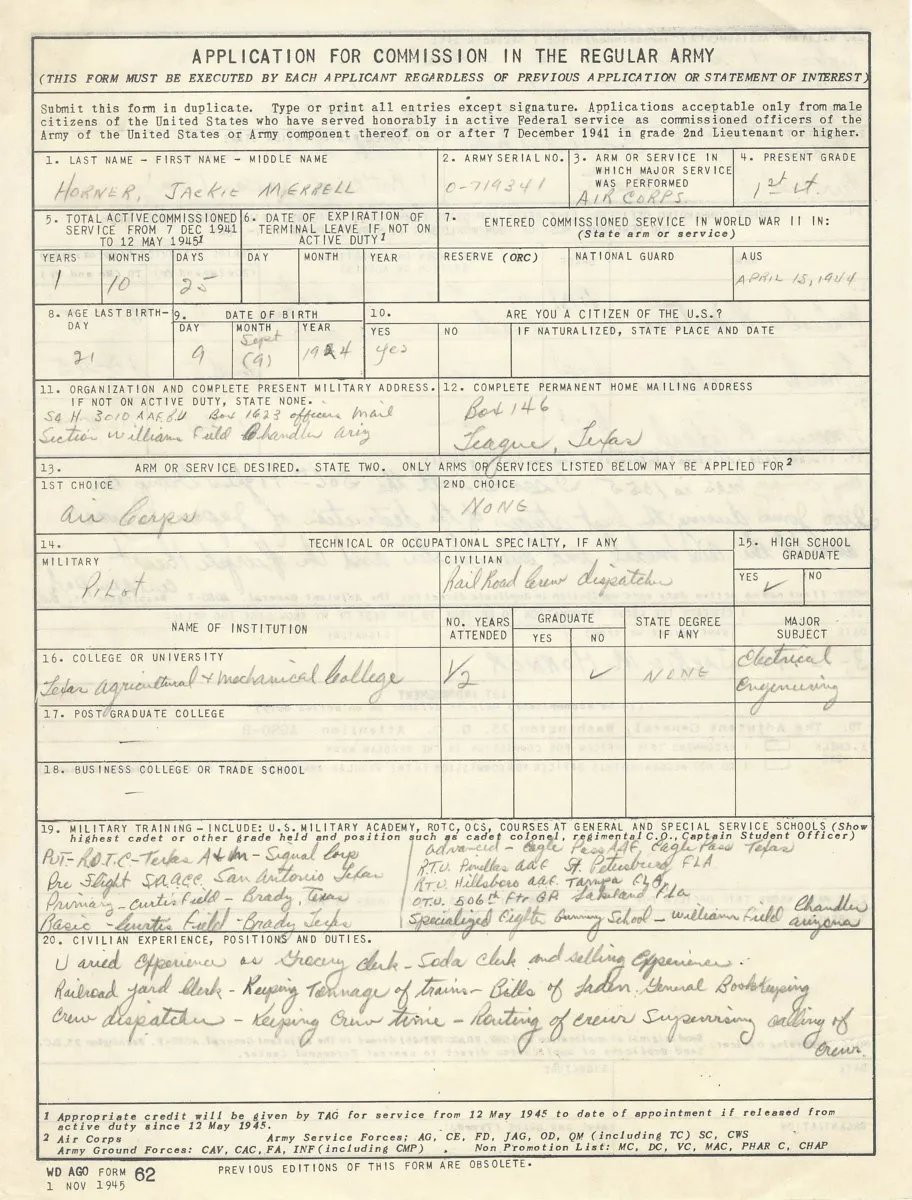 APPLICATION FOR COMMISSION IN THE REGULAR ARMY
(THIS FORM MUST BE EXECUTED BY EACH APPLICANT REGARDLESS OF PREVIOUS APPLICATION OR STATEMENT OF INTEREST)
Submit this form in duplicate. Type or print all entries except signature. Applications acceptable only from male
citizens of the United States who have served honorably in active Federal service as commissioned officers of the
Army of the United States or Army component thereof on or after 7 December 1941 in grade 2nd Lieutenant or higher.
1. LAST NAME - FIRST NAME - MIDDLE NAME
HORNER, JACKIE MERRELL
2. ARMY SERIAL NO.
0-719341
3. ARM OR SERVICE IN
WHICH MAJOR SERVICE
WAS PERFORMED
AIR CORPS
4. PRESENT GRADE
1st Lt.
5. TOTAL ACTIVE COMMISSIONED
SERVICE FROM 7 DEC 1941
TO 12 MAY 1945¹
YEARS MONTHS DAYS
1 10 25
6. DATE OF EXPIRATION OF
TERMINAL LEAVE IF NOT ON
ACTIVE DUTY¹
DAY MONTH YEAR
7. ENTERED COMMISSIONED SERVICE IN WORLD WAR II IN:
(State arm or service)
RESERVE (ORC) NATIONAL GUARD AUS
APRIL 15, 1944
8. AGE LAST BIRTH-
DAY
21
9. DATE OF BIRTH
DAY MONTH YEAR
9 Sept (9) 1924
10. ARE YOU A CITIZEN OF THE U.S.?
YES NO IF NATURALIZED, STATE PLACE AND DATE
yes
11. ORGANIZATION AND COMPLETE PRESENT MILITARY ADDRESS.
IF NOT ON ACTIVE DUTY, STATE NONE.
Sq H. 3010 AAFBU Box 1623 officers mail
Section Williams Field Chandler Ariz
12. COMPLETE PERMANENT HOME MAILING ADDRESS
Box 146
Teague, Texas
13. ARM OR SERVICE DESIRED. STATE TWO. ONLY ARMS OR SERVICES LISTED BELOW MAY BE APPLIED FOR²
1ST CHOICE
Air Corps
2ND CHOICE
NONE
14. TECHNICAL OR OCCUPATIONAL SPECIALTY, IF ANY
MILITARY
Pilot
CIVILIAN
Rail Road Crew dispatcher
15. HIGH SCHOOL
GRADUATE
YES NO
✓
NAME OF INSTITUTION
NO. YEARS
ATTENDED
GRADUATE
YES NO
STATE DEGREE
IF ANY
MAJOR
SUBJECT
16. COLLEGE OR UNIVERSITY
Texas Agricultural & Mechanical College
1/2 ✓ NONE
Electrical
Engineering
17. POST GRADUATE COLLEGE
—
18. BUSINESS COLLEGE OR TRADE SCHOOL
—
19. MILITARY TRAINING - INCLUDE: U.S. MILITARY ACADEMY, ROTC, OCS, COURSES AT GENERAL AND SPECIAL SERVICE SCHOOLS (Show
highest cadet or other grade held and position such as cadet colonel, regimental C.O., Captain Student Officer)
Pvt - R.O.T.C - Texas A & M - Signal Corp
Pre Flight S.A.A.C.C. San Antonio Texas
Primary - Curtis Field - Brady, Texas
Basic - Curtis Field - Brady Texas
Advanced - Eagle Pass AAF, Eagle Pass Texas
R.T.U. Pinellas AAF St. Petersburg FLA
R.T.U. Hillsboro AAF. Tampa FLA
O.T.U. 506th Ftr GR Lakeland Fla
Specialized Fighter Gunnery School - Williams Field Chandler
Arizona
20. CIVILIAN EXPERIENCE, POSITIONS AND DUTIES.
Varied Experience as Grocery clerk - Soda clerk and selling Experience.
Railroad yard Clerk - Keeping Tonnage of trains - Bills of Laden. General Bookkeeping
Crew dispatcher - Keeping Crew time - Routing of crews Supervising calling of
Crews.
1 Appropriate credit will be given by TAG for service from 12 May 1945 to date of appointment if released from
active duty since 12 May 1945.
2 Air Corps Army Service Forces; AG, CE, FD, JAG, OD, QM (including TC) SC, CWS
Army Ground Forces: CAV, CAC, FA, INF (including CMP) . Non Promotion List: MC, DC, VC, MAC, PHAR C, CHAP
WD AGO FORM 62
1 NOV 1945
PREVIOUS EDITIONS OF THIS FORM ARE OBSOLETE.